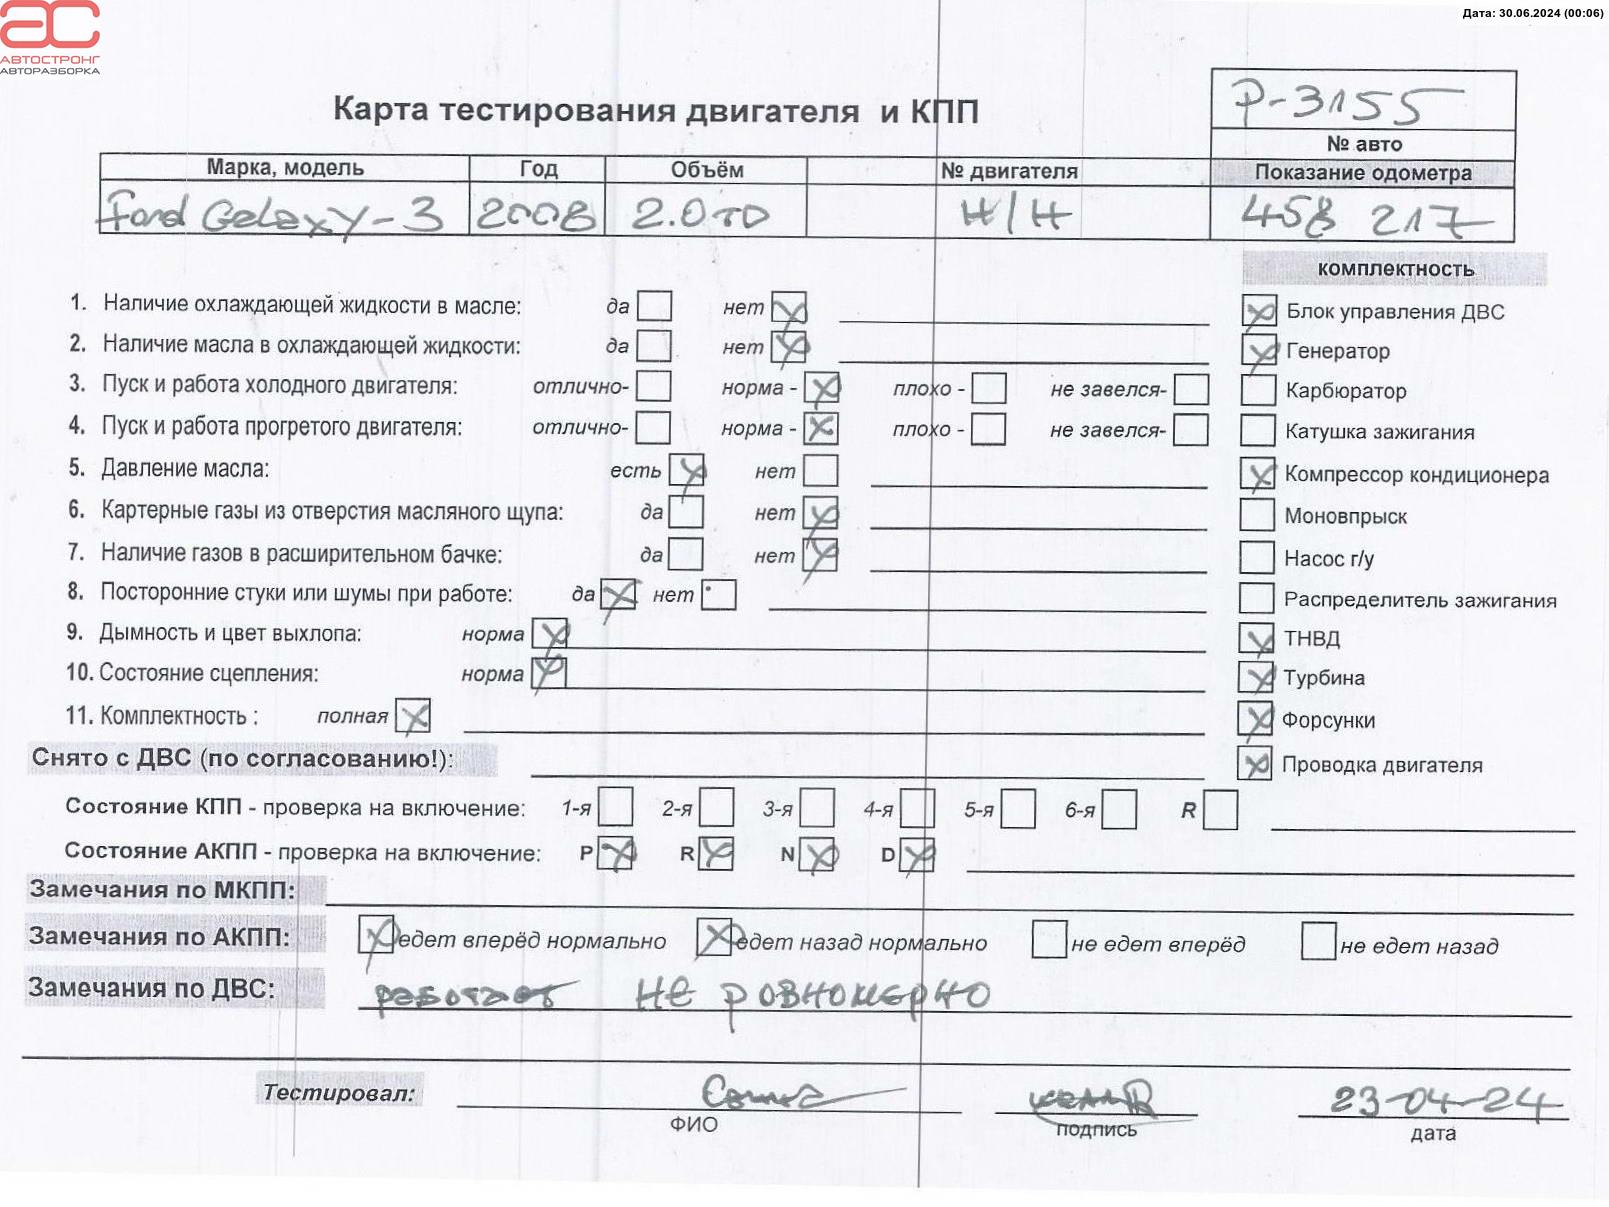 Дата: 30.06.2024 (00:06)
АС
АВТОСТРОНГ
АВТОРАЗБОРКА
Карта тестирования двигателя и КПП
Р-3155
№ авто
Марка, модель Год Объём № двигателя Показание одометра
Ford Galaxy-3 2008 2.0TD Н/Н 458 217
комплектность
1. Наличие охлаждающей жидкости в масле: да нет
Блок управления ДВС
2. Наличие масла в охлаждающей жидкости: да нет
Генератор
3. Пуск и работа холодного двигателя: отлично- норма - плохо - не завелся-
Карбюратор
4. Пуск и работа прогретого двигателя: отлично- норма - плохо - не завелся-
Катушка зажигания
5. Давление масла: есть нет
Компрессор кондиционера
6. Картерные газы из отверстия масляного щупа: да нет
Моновпрыск
7. Наличие газов в расширительном бачке: да нет
Насос г/у
8. Посторонние стуки или шумы при работе: да нет
Распределитель зажигания
9. Дымность и цвет выхлопа: норма
ТНВД
10. Состояние сцепления: норма
Турбина
11. Комплектность : полная
Форсунки
Снято с ДВС (по согласованию!):
Проводка двигателя
Состояние КПП - проверка на включение: 1-я 2-я 3-я 4-я 5-я 6-я R
Состояние АКПП - проверка на включение: P R N D
Замечания по МКПП:
Замечания по АКПП: едет вперёд нормально едет назад нормально не едет вперёд не едет назад
Замечания по ДВС: работает не ровномерно
Тестировал: 23-04-24
ФИО подпись дата